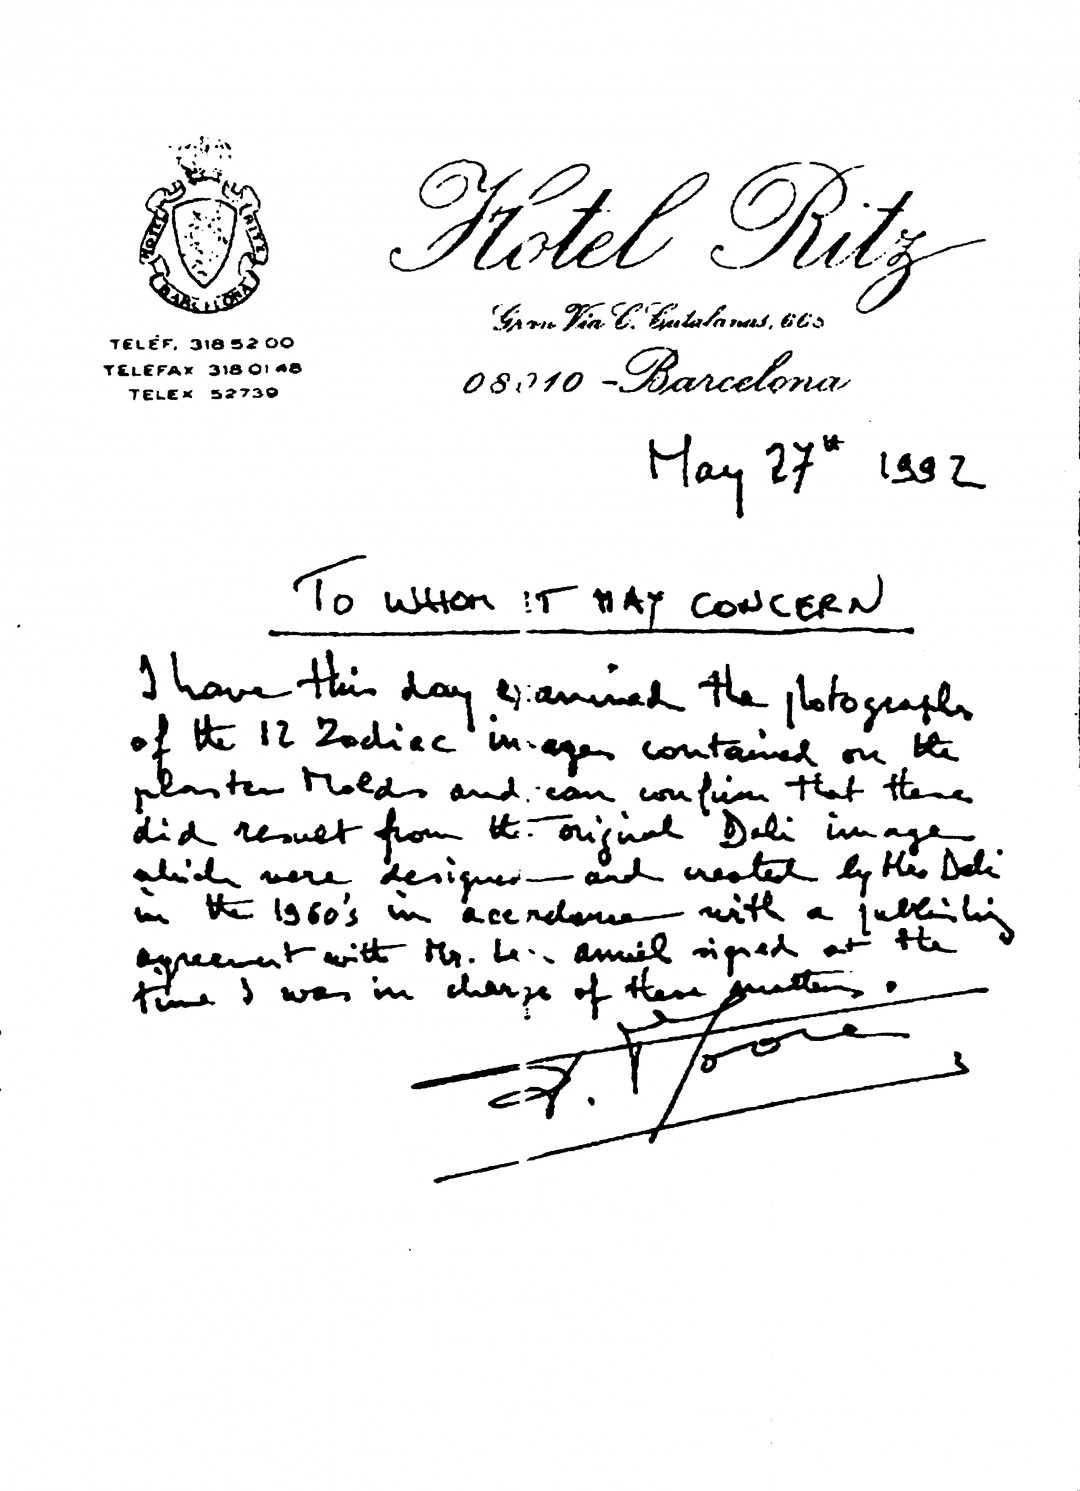 HOTEL RITZ
BARCELONA
TELÉF. 318 52 00
TELEFAX 318 01 48
TELEX 52739
Hotel Ritz
Gran Via C. Catalanas, 665
08010 - Barcelona
May 27th 1992
TO WHOM IT MAY CONCERN
I have this day examined the photographs
of the 12 Zodiac images contained on the
plaster Molds and can confirm that these
did result from the original Dali image
which were designed and created by Mr Dali
in the 1960's in accordance with a publishing
agreement with Mr. signed at the
time I was in charge of these matters.
J. P. Moore